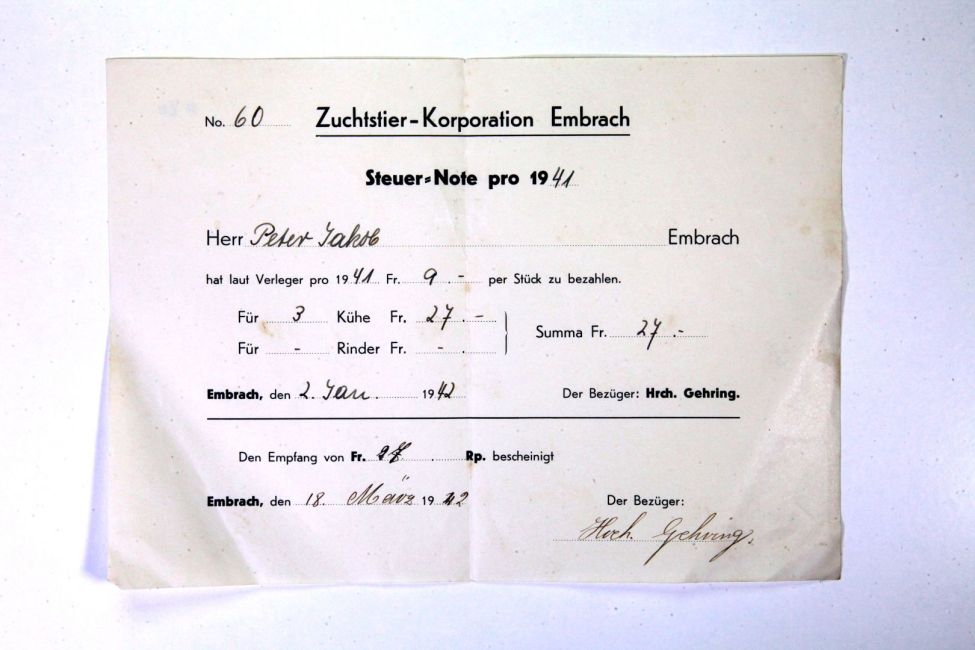 No. 60 Zuchtstier-Korporation Embrach
Steuer-Note pro 1941
Herr Peter Jakob Embrach
hat laut Verleger pro 1941 Fr. 9.- per Stück zu bezahlen.
Für 3 Kühe Fr. 27.-
Für - Rinder Fr. -.
Summa Fr. 27.-
Embrach, den 2. Jan. 1942 Der Bezüger: Hrch. Gehring.
Den Empfang von Fr. 27. Rp. bescheinigt
Embrach, den 18. März 1942 Der Bezüger:
Hrch. Gehring.